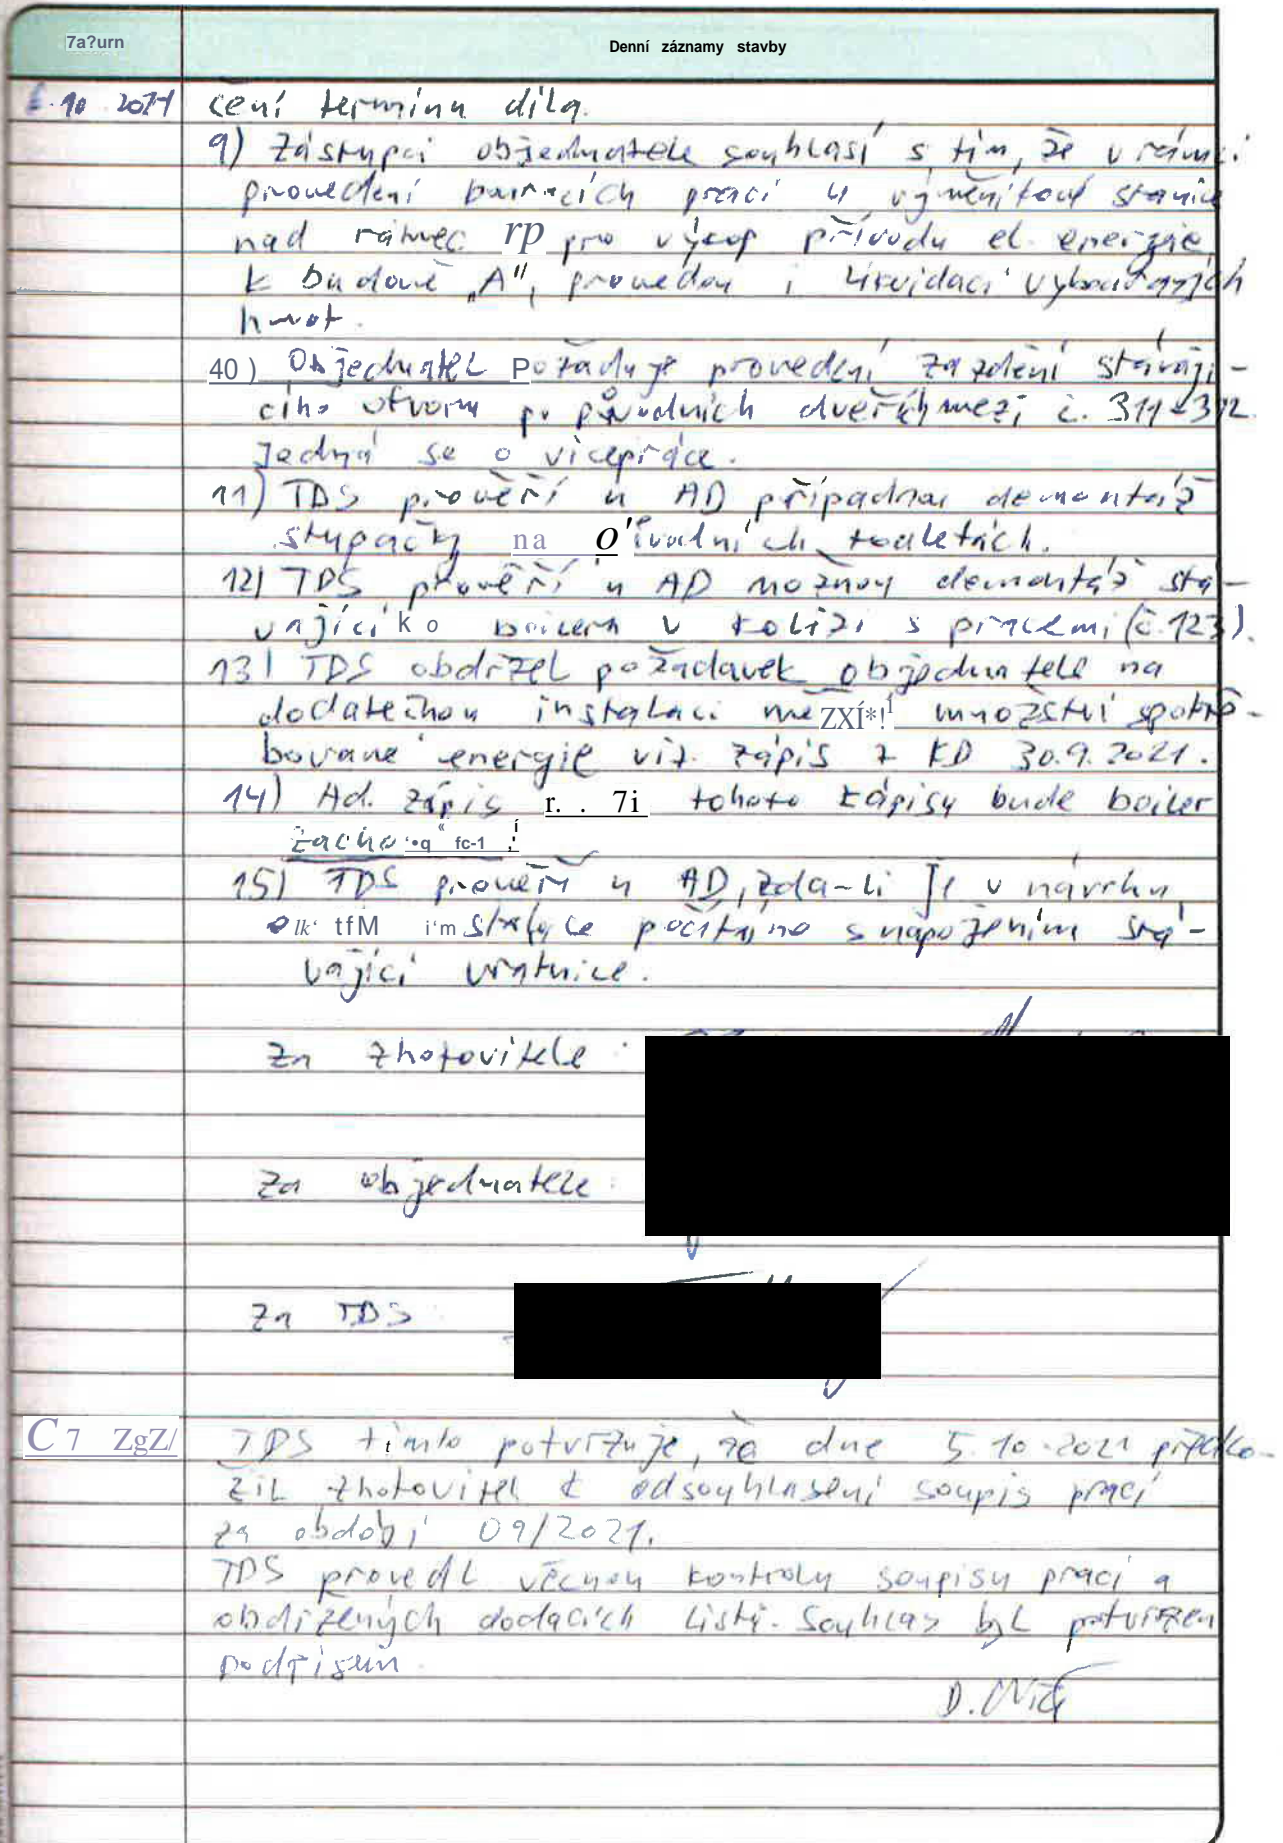 7a?urn Denní záznamy stavby
10 2021 čení termínu díla.
9) Zástupci objednatele souhlasí s tím, že v rámci
provedení bouracích prací u výměníkové stanice
nad rámec rp pro výkop přívodu el. energie
k budově „A", provedou i likvidaci vybouraných
hmot.
40) Objednatel Požaduje provedení zazdění stávají-
cího otvoru po původních dveřích mezi č. 311 a 312
Jedná se o vícepráce.
11) TDS prověří u AD případnou demontáž
stupačky na o'ivodních toaletách.
12) TDS prověří u AD možnou demontáž stá-
vajícíko boileru v kolizi s pracemi (č. 123).
13) TDS obdržel požadavek objednatele na
dodatečnou instalaci mě ZXÍ*!¹ množství spotře-
bované energie viz. zápis z KD 30.9.2021.
14) Ad. zápis r. . 7i tohoto zápisu bude boiler
zacho •q « fc-1 í
15) TDS prověří u AD, zda-li je v návrhu
lk‘ tfM i‘m počítáno s napojením stá-
vající vrátnice.
Za zhotovitele:
Za objednatele:
Za TDS
C 7 ZgZ/ TDS tímto potvrzuje, že dne 5.10.2021 předlo-
žil zhotovitel k odsouhlasení soupis prací
za období 09/2021.
TDS provedl věcnou kontrolu soupisu prací a
obdržených dodacích listů. Souhlas byl potvrzen
podpisem.
D.